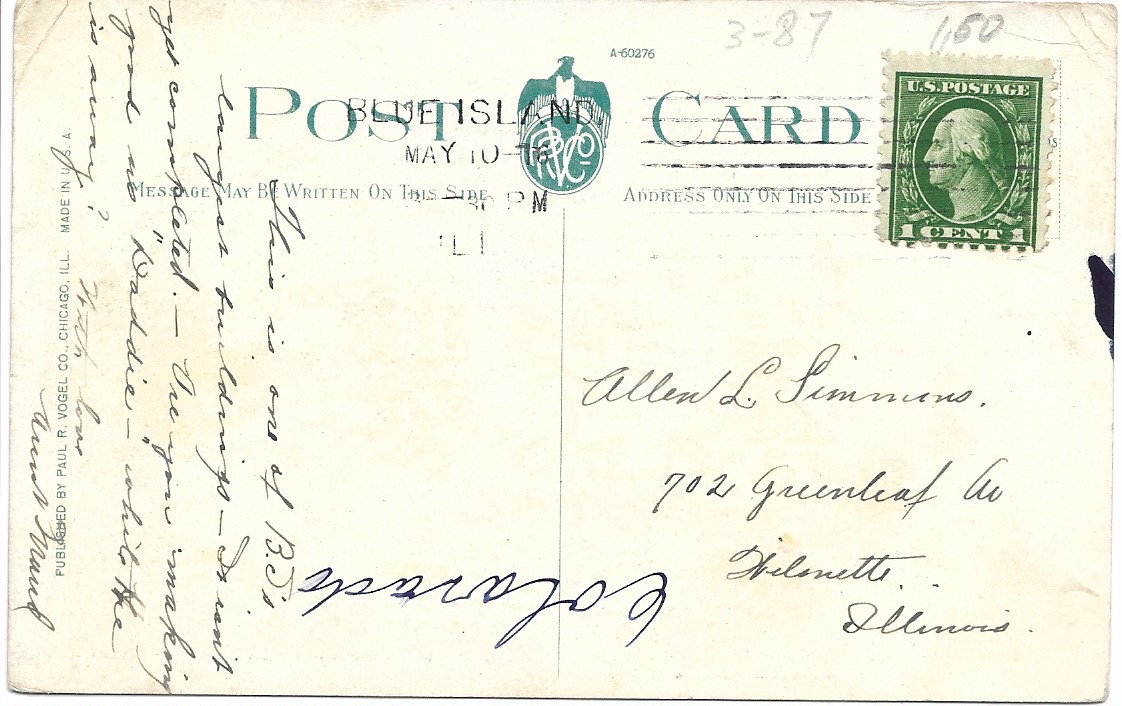 3-87
1,50
A-60276
POST CARD
BLUE ISLAND
MAY 10
PM
ILL
PRVCO
U.S. POSTAGE
1 CENT 1
MESSAGE MAY BE WRITTEN ON THIS SIDE
ADDRESS ONLY ON THIS SIDE
This is one of B.I's
largest buildings — Is not
yet completed. — Are you making
good as "Daddie" — while the
is away?
With love
Aunt Maud
Allen L. Simmons.
702 Greenleaf Av
Wilmette.
Illinois.
Colorado
PUBLISHED BY PAUL R. VOGEL CO., CHICAGO, ILL. MADE IN U. S. A.